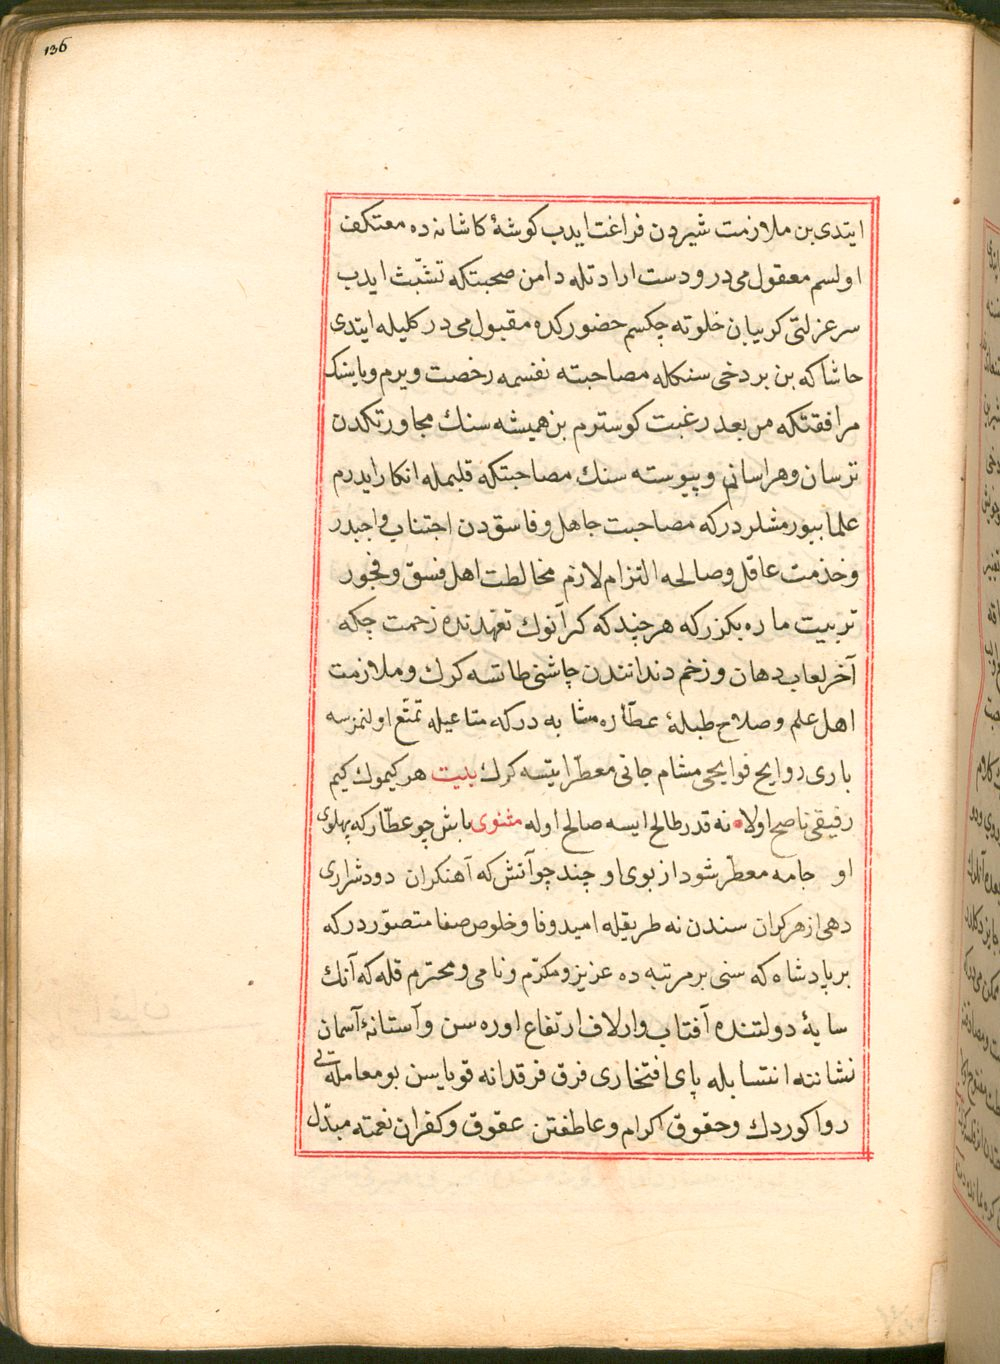 136
ایتدی بن ملازمت شیردن فراغت ایدب کوشهٔ کاشانه ده معتکف
اولسم معقول می در و دست ارادتله دامن صحبتکه تشبّث ایدب
سر عزلتی کریبان خلوته چکسم حضورکده مقبول می در کلیله ایتدی
حاشا که بن بر دخی سنکله مصاحبته نفسمه رخصت ویرم ویاسنک
مرافقتکه من بعد رغبت کوسترم بن همیشه سنك مجاورتکدن
ترسان وهراسانم و پیوسته سنك مصاحبتکه قلبمله انکار ایدرم
علما بیورمشلردرکه مصاحبت جاهل وفاسقدن اجتناب واجبدر
وخذمت عاقل وصالحه التزام لازم مخالطت اهل فسق و فجور
تربیت ماره بکزرکه هر چند که کر آنوك تعهدنده زحمت چکه
آخر لعاب دهان و زخم دندانندن چاشنی طاتسه کرك و ملازمت
اهل علم و صلاح طبلهٔ عطّاره مشابه درکه متاعیله تمتّع اولنمزسه
باری روایح فوایحی مشام جانی معطّر ایتسه کرك بیت هر کیموك کیم
رفیقی ناصح اولا • نه قدر طالح ایسه صالح اوله مثنوی باش چو عطّار که پهلوی
او جامه معطّر شود از بوی او چند چو آتش که آهنکران دود شراری
دهی از هر کران سندن نه طریقله امید وفا و خلوص صفا متصوّر درکه
بر پادشاه که سنی بر مرتبه ده عزیز و مکرّم و نامی و محترم قله که آنك
سایهٔ دولتنده آفتاب وار لاف ارتفاع اوره سن و آستانهٔ آسمان
نشاننه انتسابله پای افتخاری فرق فرقدانه قویاسن بو معامله یی
روا کوردك و حقوق اکرام و عاطفتن عقوق و کفران نعمته مبدّل